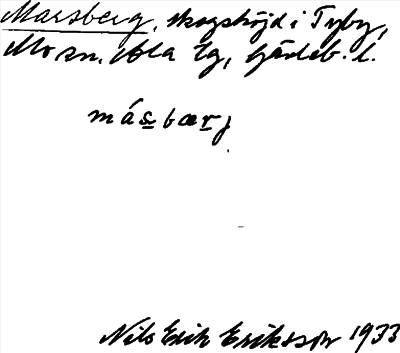 Marsberg, skogshöjd i Tyby,
Mo sn, Ala tg, Gävleb. l.
másbærj
Nils Erik Eriksson 1933